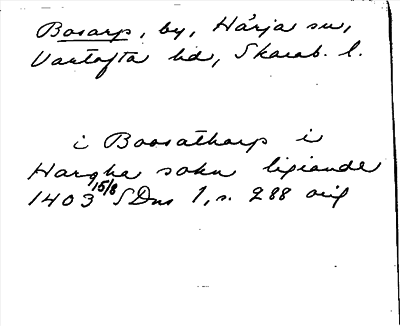 Bosarp, by, Härja sn,
Vartofta hd, Skarab. l.
i Boosathorp i
Hargha sokn ligiande
1403 15/8 SDns 1, s. 288 orig